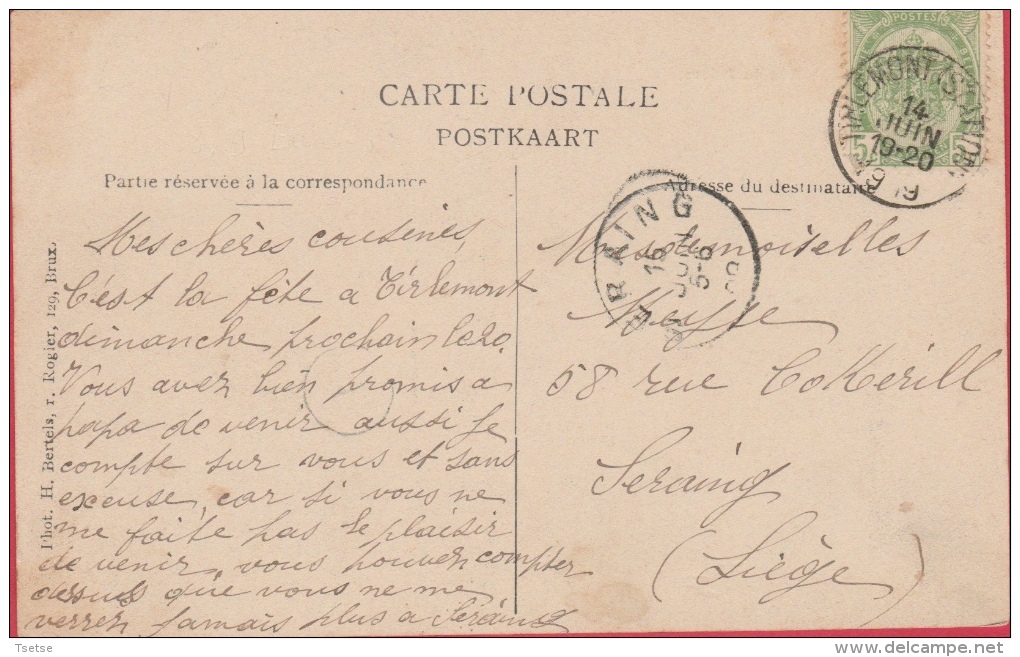 CARTE POSTALE
POSTKAART
Partie réservée à la correspondance
Adresse du destinataire
POSTES
TIRLEMONT (STATION)
14
JUIN
19-20
SERAING
15
JUIN
5-6
09
Mes chères cousines,
C'est la fête a Tirlemont
dimanche prochain le 20.
Vous avez bien promis a
papa de venir aussi je
compte sur vous et sans
excuse, car si vous ne
me faite pas le plaisir
de venir, vous pouvez compter
dessus que vous ne me
verrez jamais plus a Seraing
Mesdemoiselles
Meysse
58 rue Cokerill
Seraing
(Liège)
Phot. H. Bertels, r. Rogier, 129, Brux.
Tsetse
delcampe.net